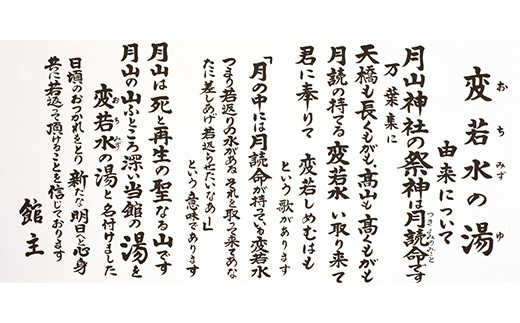 変若水の湯
おちみず ゆ
由来について
月山神社の祭神は月読命です
つきよみのみこと
万葉集に
天橋も長くもがも、高山も高くもがも
月読の持てる変若水 い取り来て
君に奉りて 変若しめむはも
という歌があります
「月の中には月読命が持っている変若水
つまり若返りの水があるそれを取って来てあな
たに差しあげ若返らせたいなあ…」
という意味であります
月山は死と再生の聖なる山です
月山の山ふところ深い当館の湯を
変若水の湯と名付けました
おちみず
日頃のおつかれをとり新たな明日へと心身
共に若返って頂けることを信じております
館主